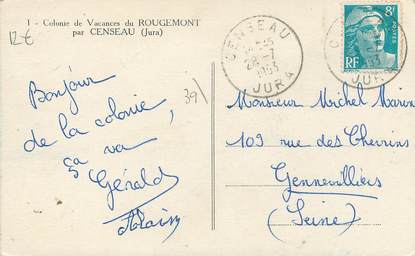 1 - Colonie de Vacances du ROUGEMONT
par CENSEAU (Jura)
12€
CENSEAU
28-7
1953
JURA
8F
POSTES
RF
JURA
39
Bonjour
de la colonie,
ça va
Gérald
Monsieur Michel Marin
103 rue des Chevrins
Gennevilliers
(Seine)